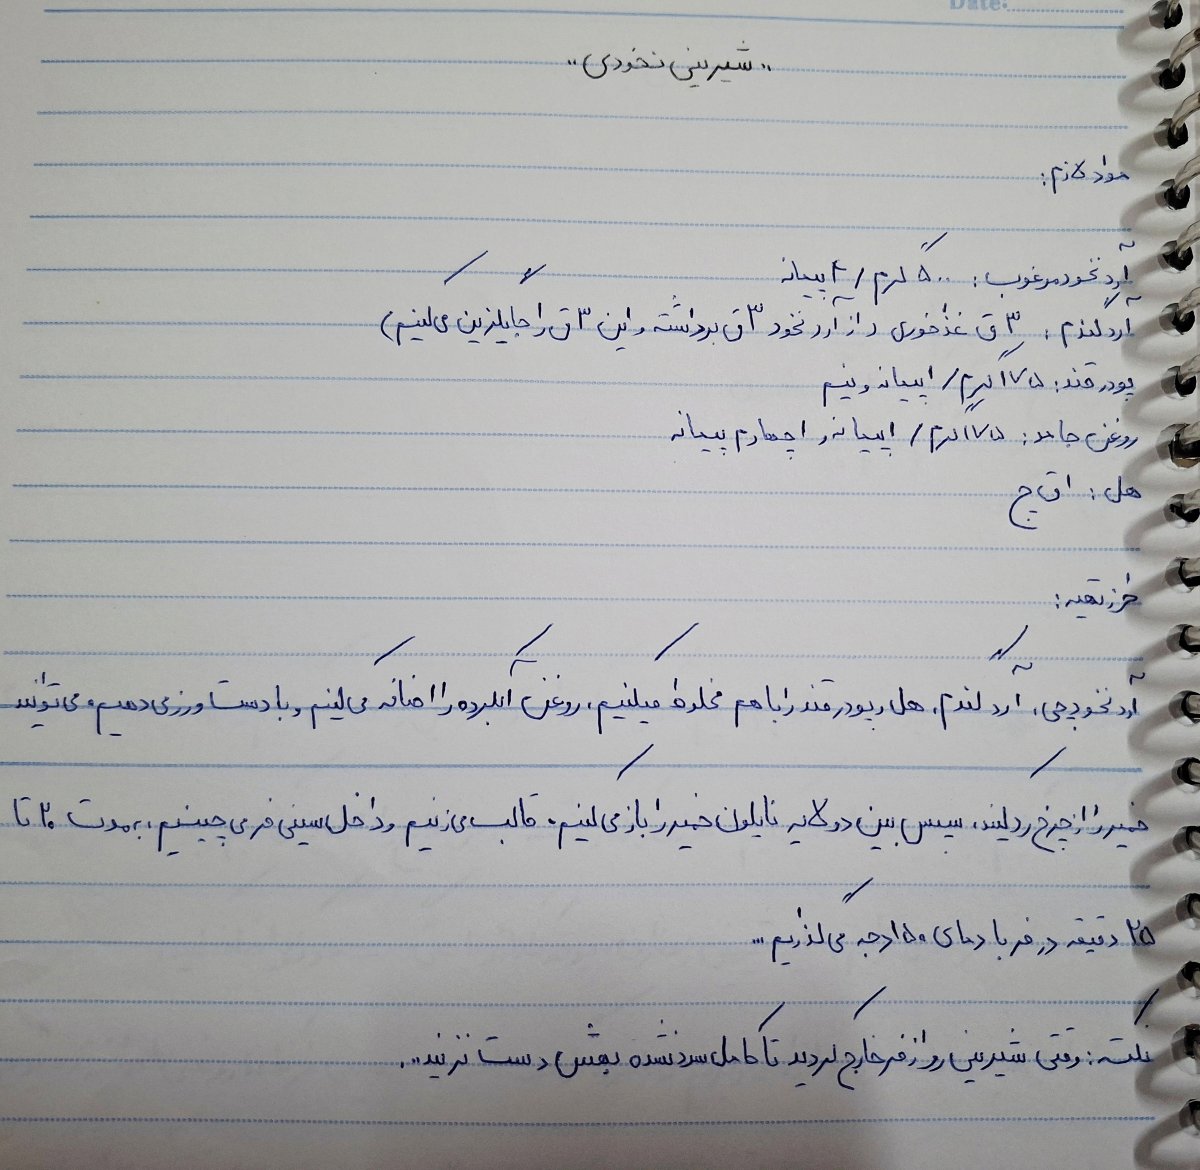 Date:
"شیرینی نخودی"
مواد لازم:
آرد نخود مرغوب: ۵۰۰ گرم / ۴ پیمانه
آرد گندم: ۳ ق غذاخوری (از آرد نخود ۳ ق برداشته و این ۳ ق را جایگزین می‌کنیم)
پودر قند: ۱۷۵ گرم / ۱ پیمانه و نیم
روغن جامد: ۱۷۵ گرم / ۱ پیمانه و ۱ چهارم پیمانه
هل: ۱ ق چ
طرز تهیه:
آرد نخودچی، آرد گندم، هل و پودر قند را با هم مخلوط میکنیم، روغن آبکرده را اضافه می‌کنیم و با دست ورز می‌دهیم، می‌توانید
خمیر را از چرخ رد کنید، سپس بین دو لایه نایلون خمیر را باز می‌کنیم. قالب می‌زنیم و داخل سینی فر می‌چینیم، به مدت ۲۰ تا
۲۵ دقیقه در فر با دمای ۱۵۰ درجه می‌گذاریم...
نکته: وقتی شیرینی رو از فر خارج کردید تا کامل سرد نشده بهش دست نزنید..